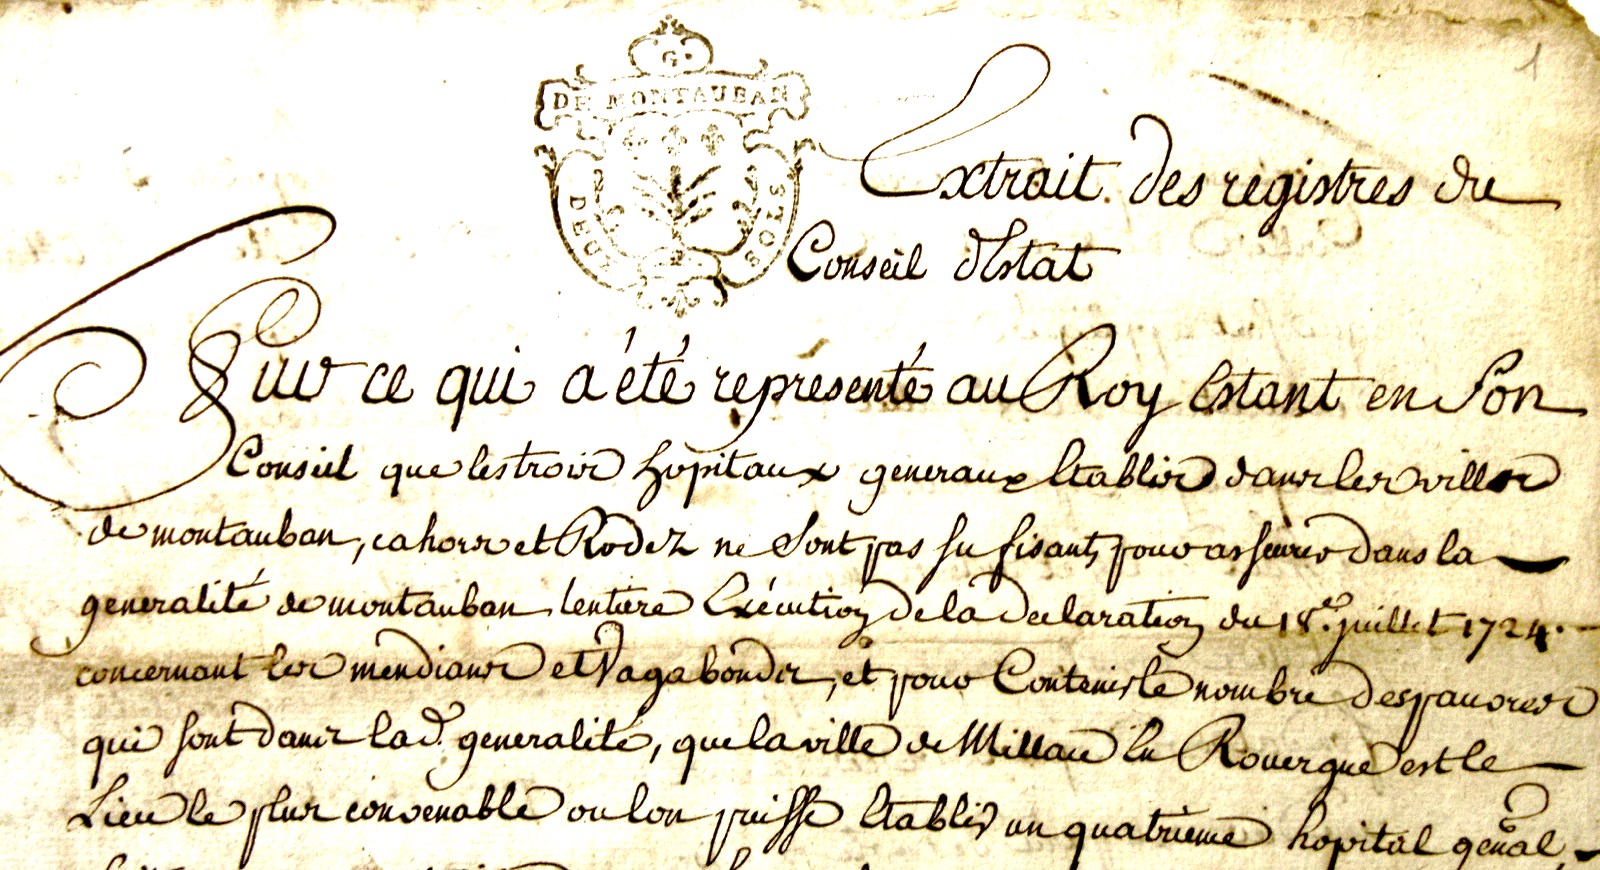 1
G.
DE MONTAUBAN
DEUX SOLS
Extrait des registres du
Conseil d'Estat
Sur ce qui a été représenté au Roy Estant en Son
Conseil que les trois hôpitaux generaux Etablis dans les villes
de montauban, cahors et Rodez ne Sont pas sufisants pour assurer dans la
generalité de montauban lentiere Exécution de la declaration du 18e. juillet 1724.
concernant les mendians et Vagabonds, et pour Contenir le nombre des pauvres
qui sont dans lad. generalité, que la ville de Millau En Rouergue est le
Lieu le plus convenable ou lon puisse Etablir un quatrième hopital genal,